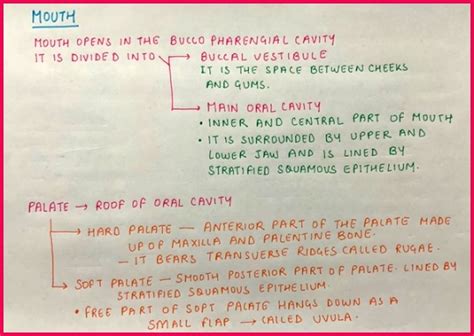 MOUTH
MOUTH OPENS IN THE BUCCO PHARENGIAL CAVITY
IT IS DIVIDED INTO → BUCCAL VESTIBULE
IT IS THE SPACE BETWEEN CHEEKS
AND GUMS.
→ MAIN ORAL CAVITY
• INNER AND CENTRAL PART OF MOUTH
• IT IS SURROUNDED BY UPPER AND
LOWER JAW AND IS LINED BY
STRATIFIED SQUAMOUS EPITHELIUM.
PALATE → ROOF OF ORAL CAVITY
→ HARD PALATE — ANTERIOR PART OF THE PALATE MADE
UP OF MAXILLA AND PALENTINE BONE.
— IT BEARS TRANSVERSE RIDGES CALLED RUGAE.
→ SOFT PALATE — SMOOTH POSTERIOR PART OF PALATE. LINED BY
STRATIFIED SQUAMOUS EPITHELIUM.
• FREE PART OF SOFT PALATE HANGS DOWN AS A
SMALL FLAP → CALLED UVULA.